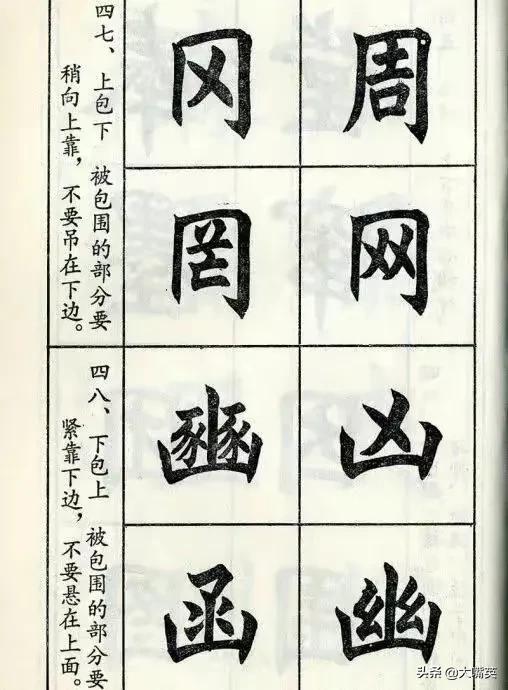 四七、上包下 被包围的部分要
稍向上靠，不要吊在下边。
周
网
冈
罔
四八、下包上 被包围的部分要
紧靠下边，不要悬在上面。
凶
幽
豳
函
头条 @大嘴英